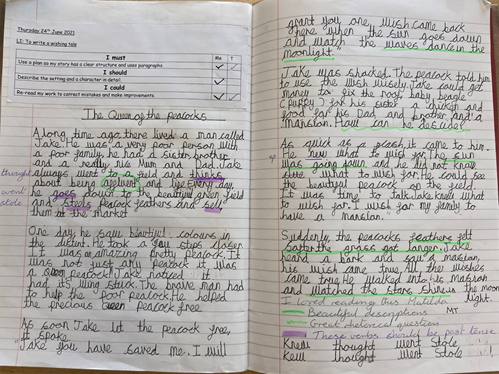 Thursday 24th June 2021
LI: To write a wishing tale
I must
Me
T
Use a plan so my story has a clear structure and uses paragraphs.
I should
Describe the setting and a character in detail.
I could
Re-read my work to correct mistakes and make improvements.
The Queen of the peacocks
A long time ago there lived a man called
Jake. He was a very poor person with
a poor family, he had a sister, brother
and a really his Mum and Dad. Jake
thought
always went to a field and thinks
about being and life. Every day,
went
he goes down to the beautiful green field
stole
and steels peacock feathers and sell
them at the market
One day he saw colours in
the distent. He took a few steps closer.
It was amazing pretty peacock. It
was not just any peacock it was
a peacock! Jake noticed it
had its wing stuck. The brave man had
to help the poor peacock. He helped
the precious peacock free
As soon Jake let the peacock free,
it spoke.
"Jake you have saved me. I will
grant you one wish. Came back
here when the sun goes down
and watch the waves dance in the
moonlight."
Jake was shocked. The peacock told him
to use the wish wisely. Jake could get
money to fix the roof, baby beagle
(puppy) for his sister, a chicken and
food for his Dad and brother and a
mansion. How can he decide?
As quick as a flash, it came to him.
He new what to wish for. The sun
was going down and he did not know
sure what to wish for. He could see
the beautiful peacock on the field.
It was time to talk. Jake knew what
to wish for. I wish for my family to
have a mansion."
Suddenly, the peacocks feathers felt
softer the grass got longer. Jake
heard a bark and saw a masion,
his wish came true. All the wishes
came true. He walked into his masion
and watched the stars shine in the moon
light.
I loved reading this Matilda
MT.
Beautiful descriptions
Great rhetorical question
These verbs should be past tense
Knew thought went Stole
Kewll thought went Stole